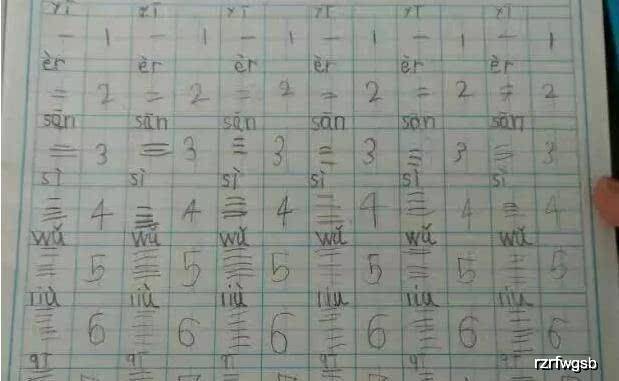 yī yī yī yī yī yī
一 1 一 1 一 1 一 1 一 1 一 1
èr èr èr èr èr èr
二 2 二 2 二 2 二 2 二 2 二 2
sān sān sān sān sān sān
三 3 三 3 三 3 三 3 三 3 三 3
sì sì sì sì sì sì
亖 4 亖 4 亖 4 亖 4 亖 4 亖 4
wǔ wǔ wǔ wǔ wǔ wǔ
5 5 5 5 5 5
liù liù liù liù liù liù
6 6 6 6 6 6
qī qī qī qī qī qī
rzrfwgsb